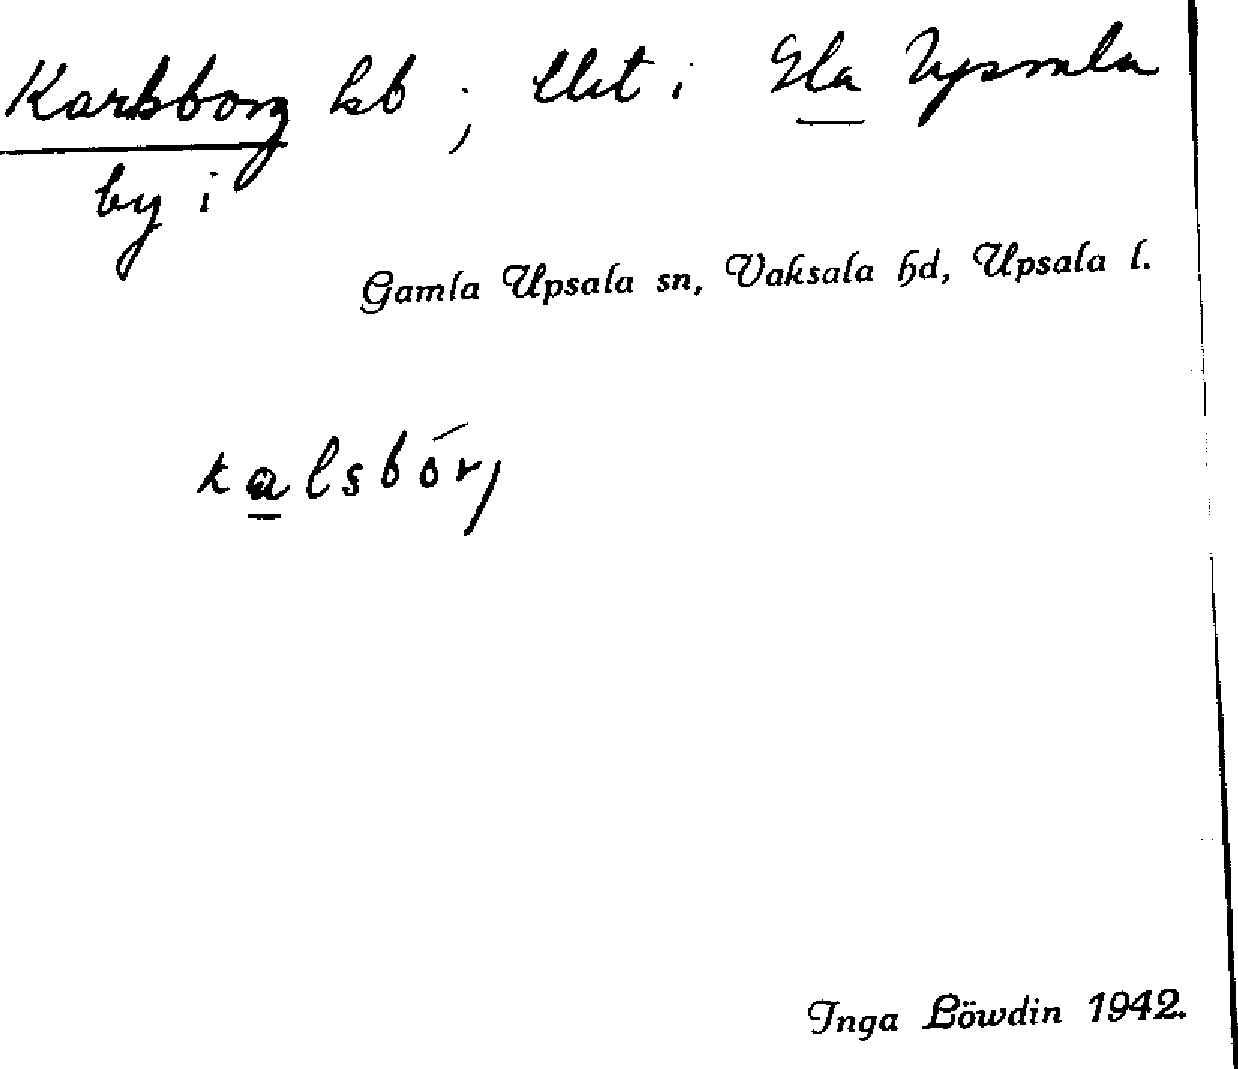 Karlsborg hb; llet i Gla Upsala
by i
Gamla Upsala sn, Vaksala hd, Upsala l.
kalsbórj
Inga Löwdin 1942.